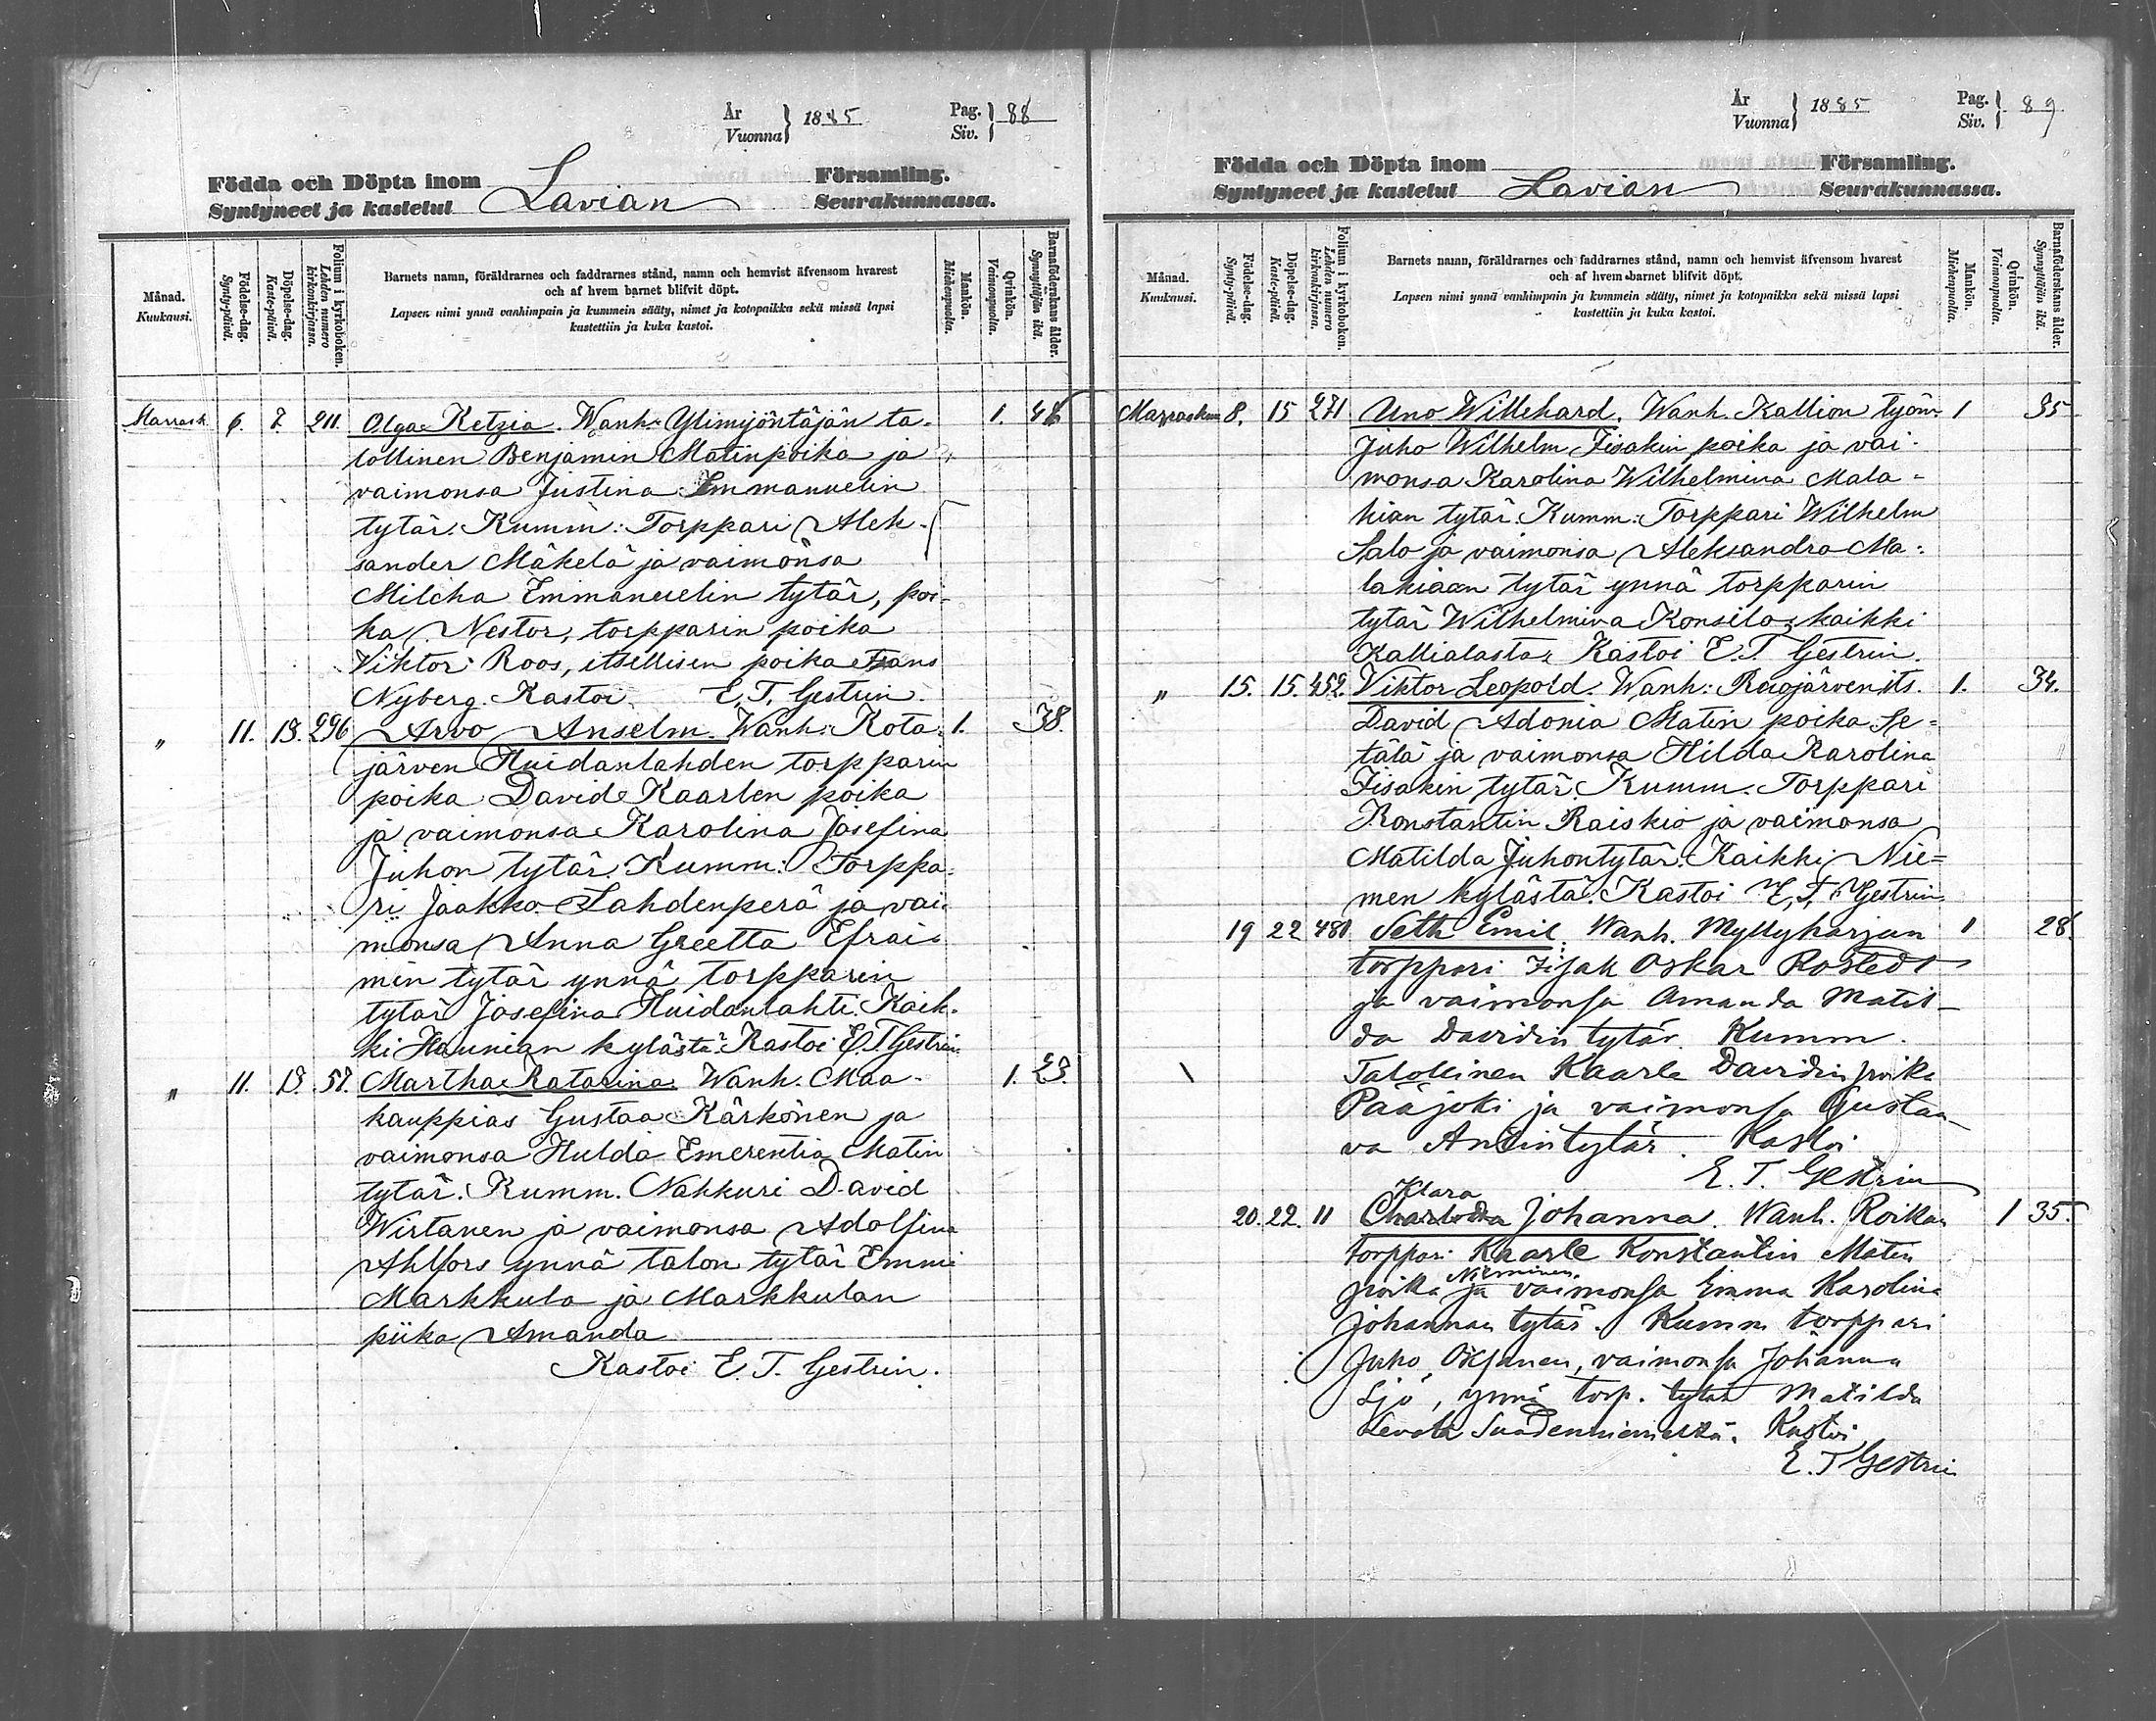 År
Vuonna } 1885 Pag.
Siv. } 88
Födda och Döpta inom Lavian Församling.
Syntyneet ja kastetut Seurakunnassa.
Månad.
Kuukausi.
Födelse-dag.
Synty-päivä.
Döpelse-dag.
Kaste-päivä.
Folium i kyrkoboken.
Lehden numero kirkonkirjassa.
Barnets namn, föräldrarnes och faddrarnes stånd, namn och hemvist äfvensom hvarest
och af hvem barnet blifvit döpt.
Lapsen nimi ynnä vanhimpain ja kummein sääty, nimet ja kotopaikka sekä missä lapsi
kastettiin ja kuka kastoi.
Mankön.
Miehenpuolia.
Qvinkön.
Vaimonpuolia.
Barnaföderskans ålder.
Synnyttäjän ikä.
Marrask. 6. 7. 211. Olga Ketzia. Wanh: Ylimyöntäjän ta- 1.
lollinen Benjamin Matinpoika ja
vaimonsa Justina Emmanuelin
tytär. Kumm: Torppari Alek-
sander Mäkelä ja vaimonsa
Milcha Emmanuelin tytär, poi-
ka Nestor, torpparin poika
Viktor Roos, itsellisen poika Frans
Nyberg. Kastoi E. T. Gestrin.
" 11. 13. 296 Arvo Anselm. Wanh: Kota- 1. 38.
järven Huidanlahden torpparin
poika David Kaarlen poika
ja vaimonsa Karolina Josefina
Juhon tytär. Kumm: Torppa-
ri Jaakko Lahdenperä ja vai-
monsa Anna Greetta Efrai-
min tytär ynnä torpparin
tytär Josefina Huidanlahti. Kaik-
ki Haunian kylästä. Kastoi E. T. Gestrin.
" 11. 13. 57. Martha Katarina. Wanh. Maa- 1. 23.
kauppias Gustaa Kärkönen ja
vaimonsa Hulda Emerentia Matin
tytär. Kumm. Nahkuri David
Wirtanen ja vaimonsa Adolfina
Ahlfors ynnä talon tytär Emmi
Markkula ja Markkulan
piika Amanda
Kastoi E. T. Gestrin.
År
Vuonna } 1885 Pag.
Siv. } 89
Födda och Döpta inom Lavian Församling.
Syntyneet ja kastetut Seurakunnassa.
Månad.
Kuukausi.
Födelse-dag.
Synty-päivä.
Döpelse-dag.
Kaste-päivä.
Folium i kyrkoboken.
Lehden numero kirkonkirjassa.
Barnets namn, föräldrarnes och faddrarnes stånd, namn och hemvist äfvensom hvarest
och af hvem barnet blifvit döpt.
Lapsen nimi ynnä vanhimpain ja kummein sääty, nimet ja kotopaikka sekä missä lapsi
kastettiin ja kuka kastoi.
Mankön.
Miehenpuolia.
Qvinkön.
Vaimonpuolia.
Barnaföderskans ålder.
Synnyttäjän ikä.
Marraskuu 8. 15 271 Uno Willehard. Wanh. Kallion työm. 1 35
Juho Wilhelm Iisakin poika ja vai-
monsa Karolina Wilhelmina Mala-
kian tytär. Kumm: Torppari Wilhelm
Salo ja vaimonsa Aleksandra Ma-
lakiaan tytär ynnä torpparin
tytär Wilhelmina Konsilo, kaikki
Kallialasta. Kastoi E. T. Gestrin.
" 15. 15. 452. Viktor Leopold. Wanh: Raojärven its. 1. 34.
David Adonia Matin poika Se-
tälä ja vaimonsa Hilda Karolina
Iisakin tytär. Kumm. Torppari
Konstantin Raiskio ja vaimonsa
Matilda Juhontytär. Kaikki Nie-
men kylästä. Kastoi E. T. Gestrin.
19 22 480 Seth Emil. Wanh. Myllyharjun 1 28.
torppari Iisak Oskar Rostedt
ja vaimonsa Amanda Matil-
da Davidin tytär. Kumm.
Talollinen Kaarle Davidin poika
Pääjoki ja vaimonsa Gustaa-
va Antintytär. Kastoi
E. T. Gestrin
Klara
20. 22. 11 Charlotta Johanna. Wanh. Roikan 1 35.
torppari Kaarle Konstantin Matin
Nieminen
poika ja vaimonsa Emma Karolina
Johannan tytär. Kumm torppari
Juho Oksanen, vaimonsa Johanna
Sjö, ynnä torp. tytär Matilda
Suodenniemeltä. Kastoi
E. T Gestrin